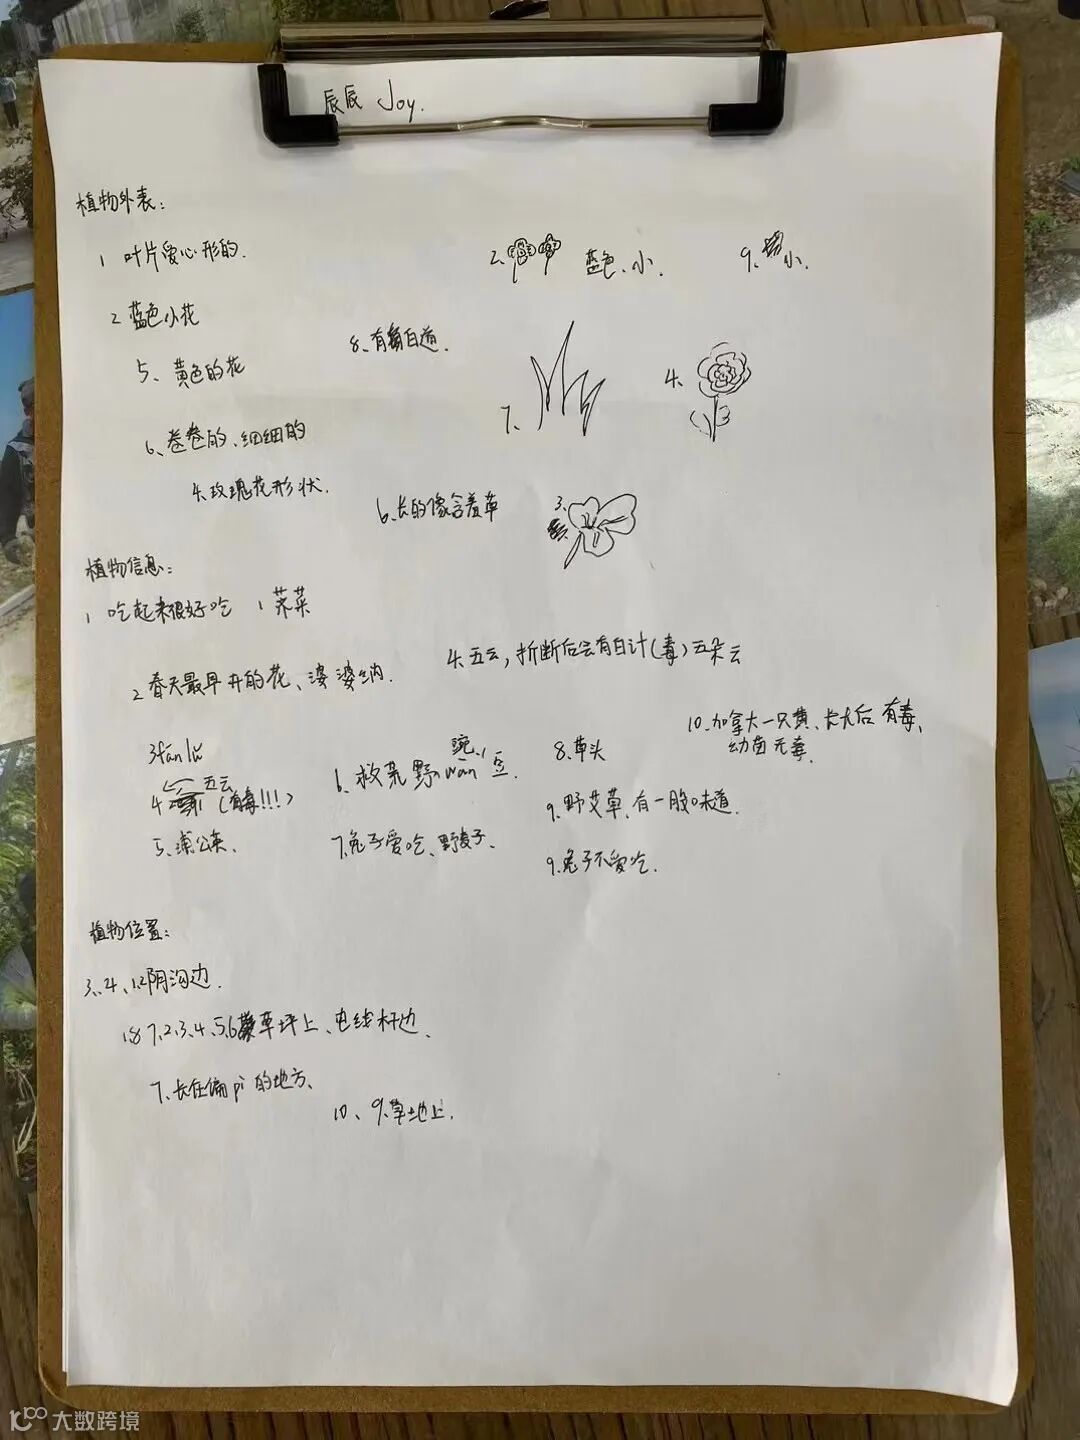 辰辰 Joy.
植物外表：
1 叶片爱心形的.
2. 蓝色、小.
9、小.
2 蓝色小花
8、有白道.
5、黄色的花
7、
4、
6、卷卷的、细细的
4、玫瑰花形状.
6、长的像含羞草
3、
植物信息：
1 吃起来很好吃 1 荠菜
4、五云，折断后会有白汁(毒)五朵云
2 春天最早开的花、婆婆纳.
10、加拿大一只黄、长大后有毒、
幼苗无毒.
3 fan lü
8、草头
豌
6、救荒野wan豆.
五云
4 (有毒!!!)
9、野艾草、有一股味道.
5、浦公英.
7、兔子爱吃、野麦子.
9、兔子不爱吃.
植物位置：
3、4、1、2阴沟边.
1、8 7、2、3、4、5、6草坪上、电线杆边.
7、长在偏pì的地方、
10、9、草地上.
大数跨境